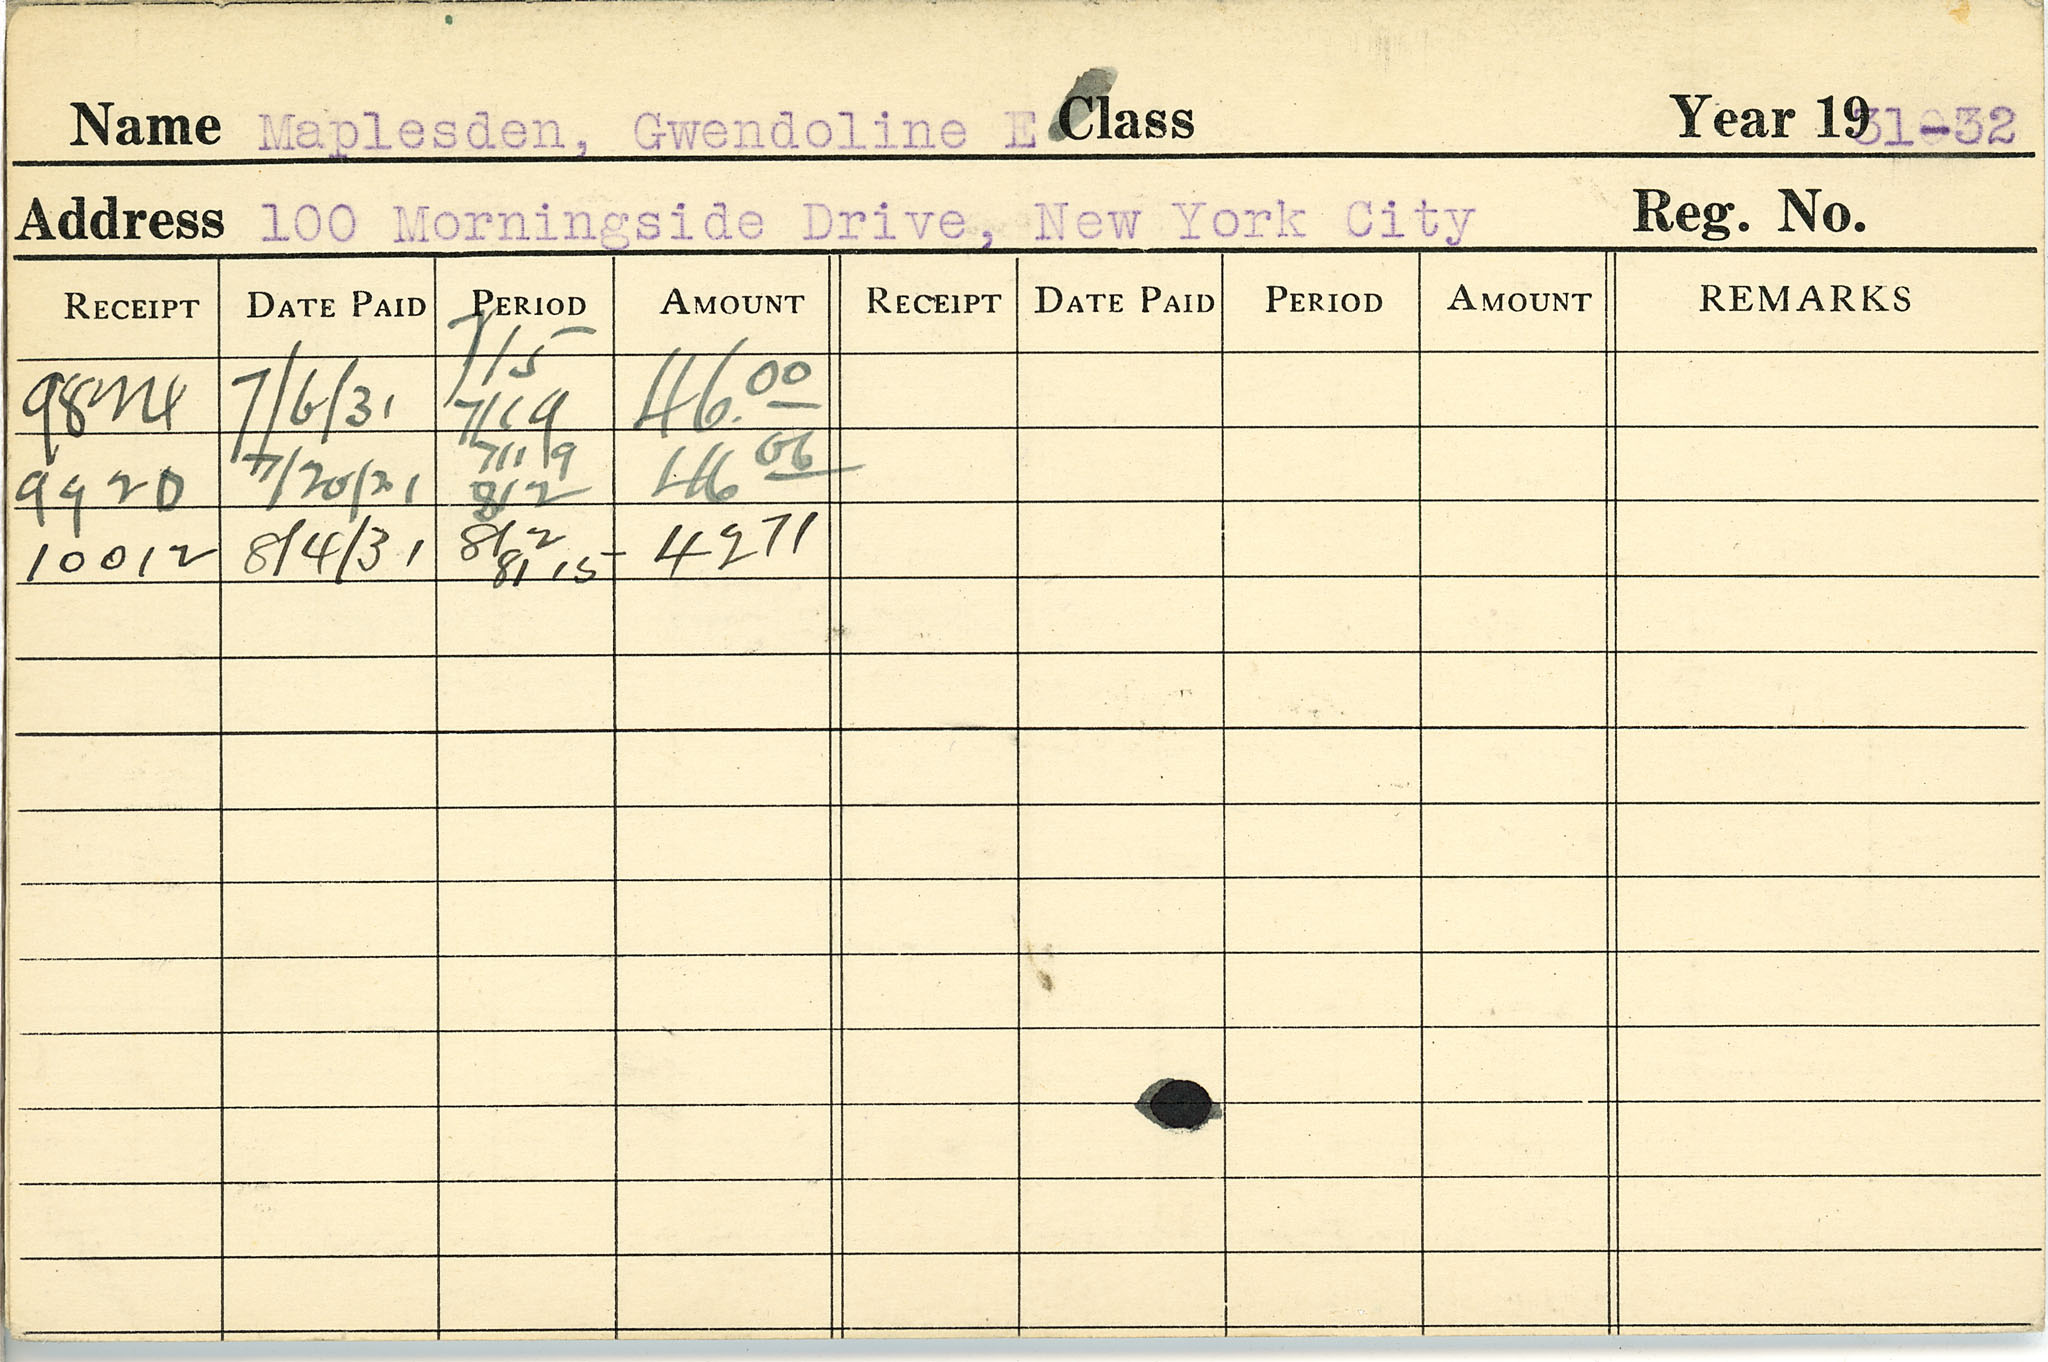 Name Maplesden, Gwendoline E Class Year 1931-32
Address 100 Morningside Drive, New York City Reg. No.
RECEIPT DATE PAID PERIOD AMOUNT RECEIPT DATE PAID PERIOD AMOUNT REMARKS
7/5
7/6/31 7/19 46.00
7/19
9920 7/20/31 8/2 46 00
10012 8/4/31 8/2 4971
8/15